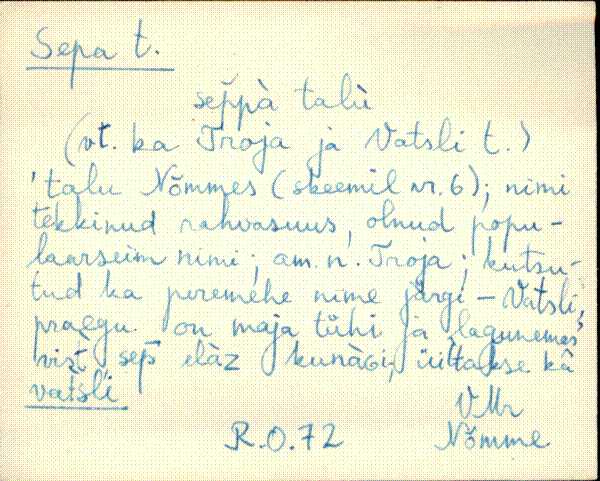 Sepa t.
sep̌pà talù
(vt. ka Troja ja Vatsli t.)
'talu Nõmmes (skeemil nr. 6); nimi
tekkinud rahvasuus, olnud popu-
laarseim nimi; am. n. Troja; kutsu-
tud ka peremehe nime järgi – Vatsli,
praegu on maja tühi ja lagunemas'
vist sep̄ elàz kunàGi, üittakse kâ
vatsli
VMr
R.O.72 Nõmme